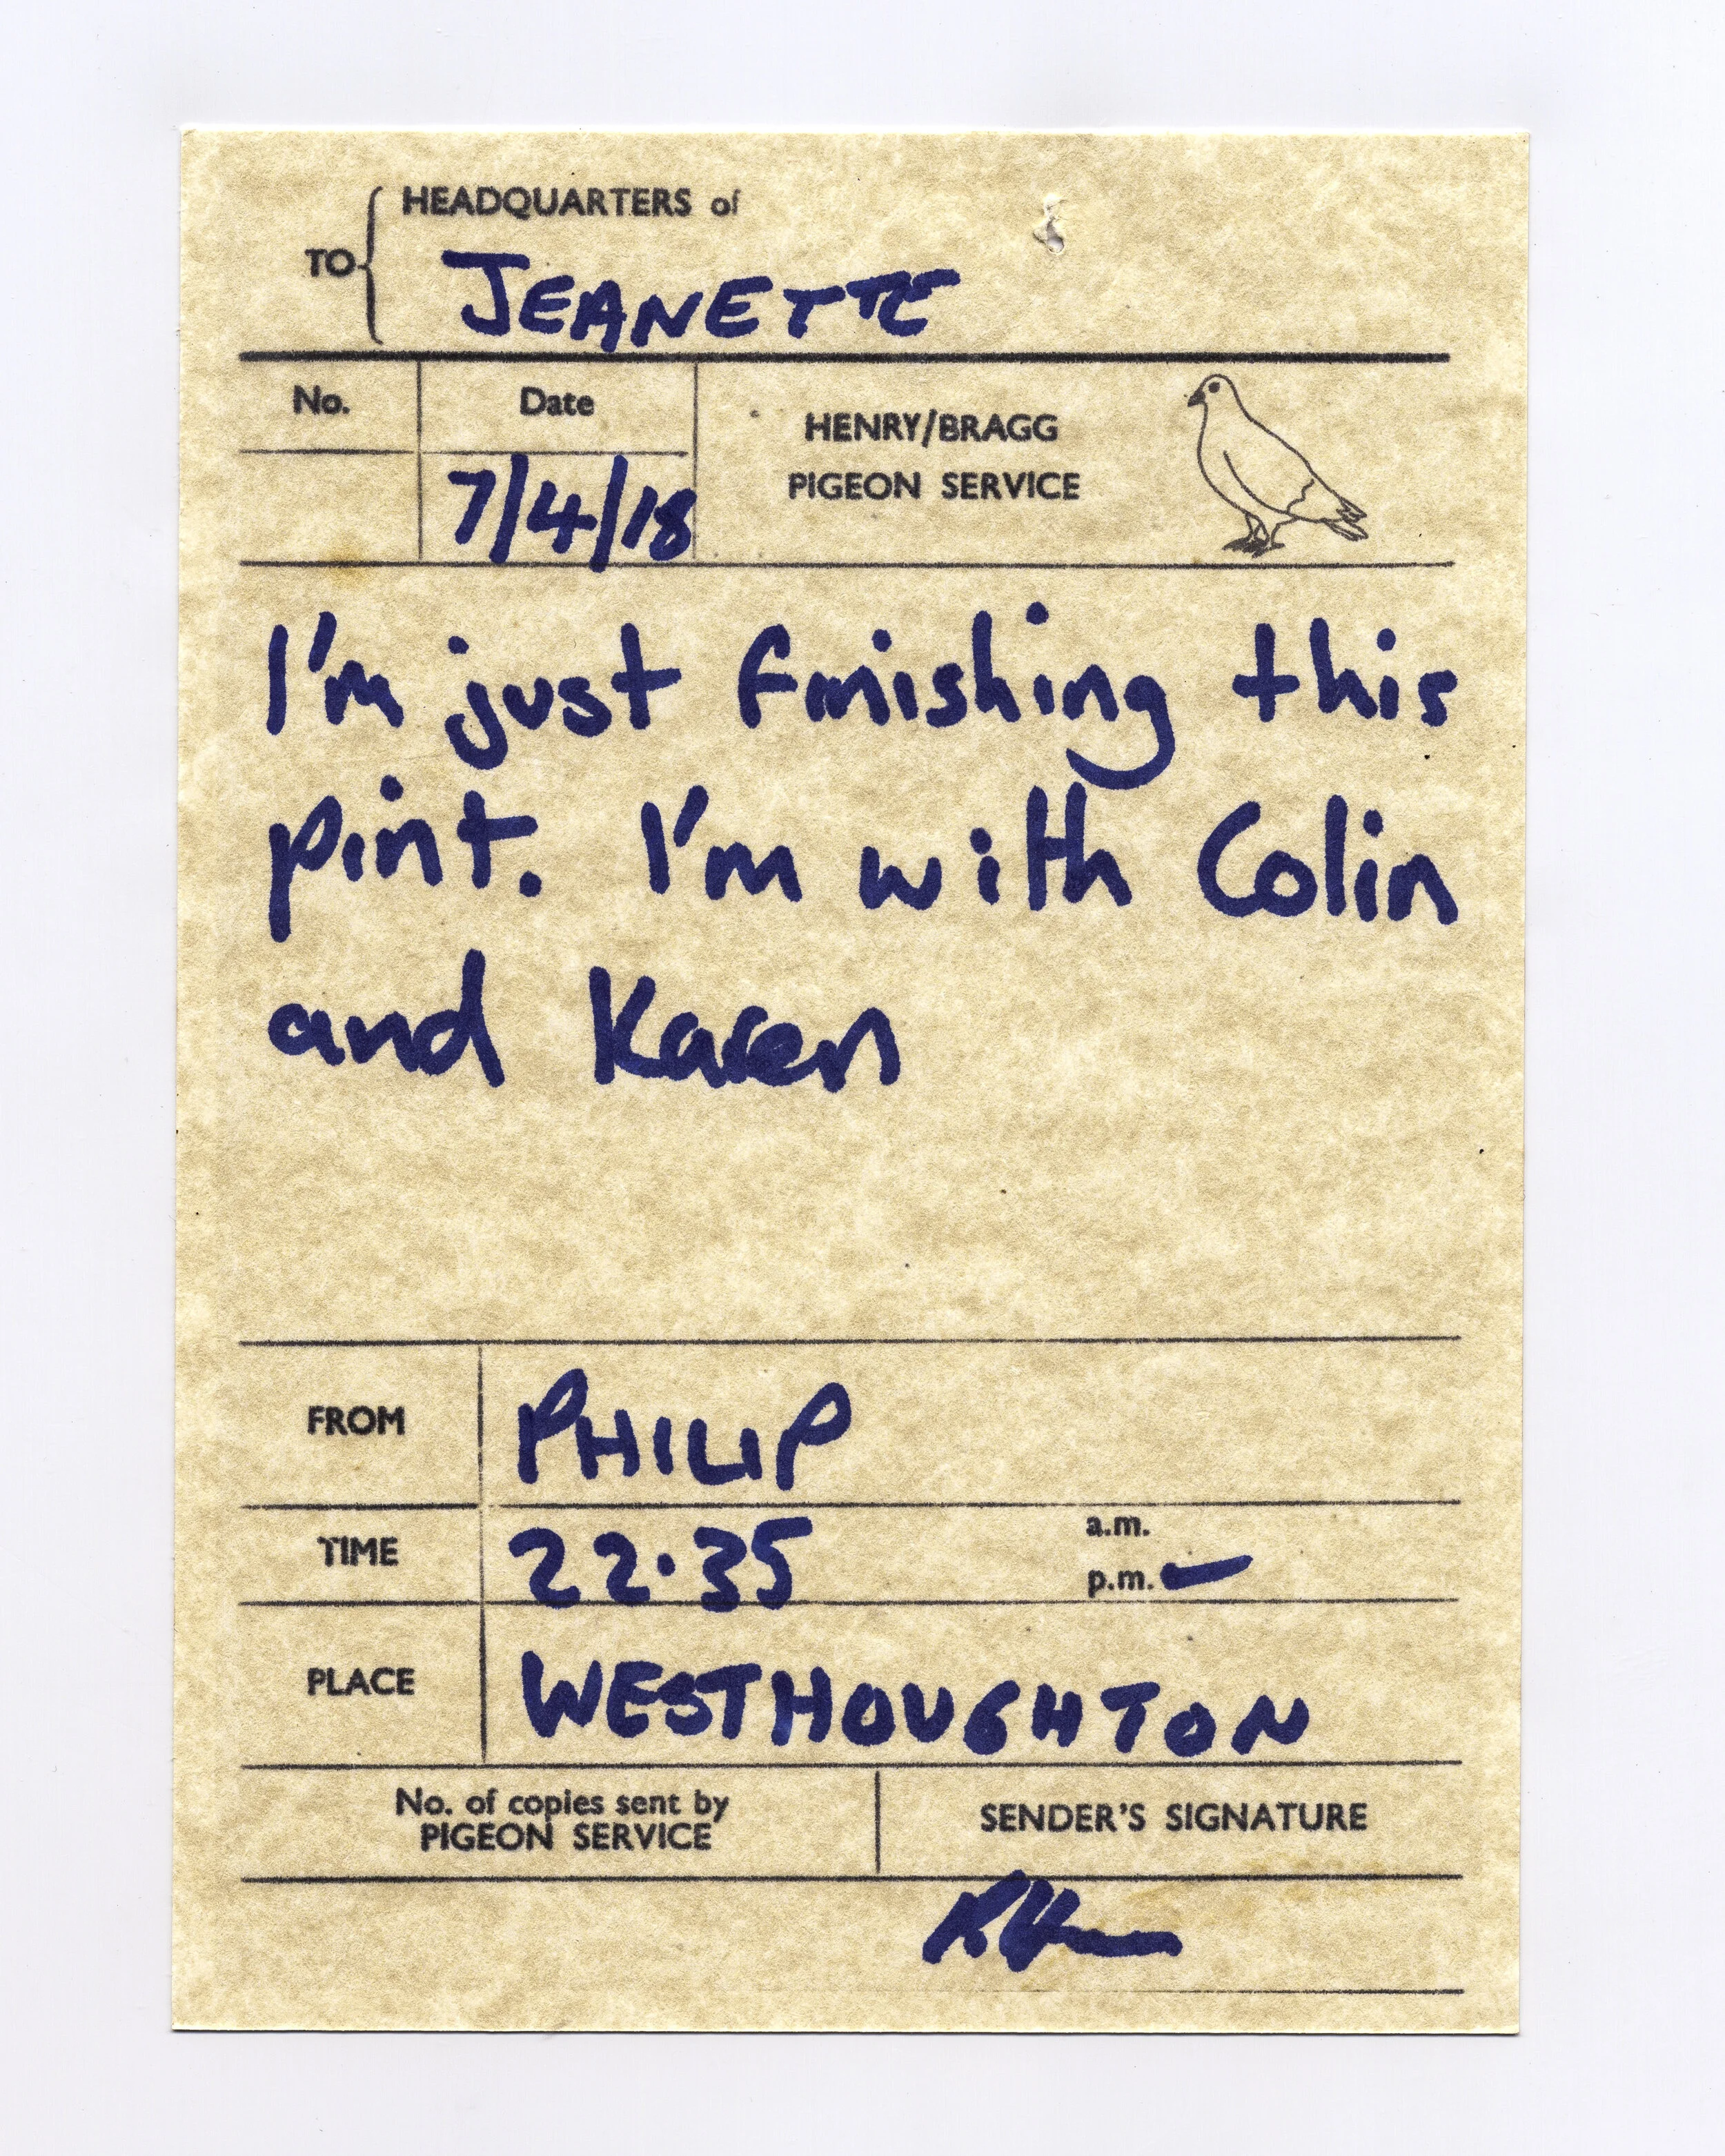 HEADQUARTERS of
TO
JEANETTE
No.
Date
HENRY/BRAGG
PIGEON SERVICE
7/4/18
I'm just finishing this
pint. I'm with Colin
and Karen
FROM
PHILIP
TIME
22.35
a.m.
p.m.
PLACE
WESTHOUGHTON
No. of copies sent by
PIGEON SERVICE
SENDER'S SIGNATURE